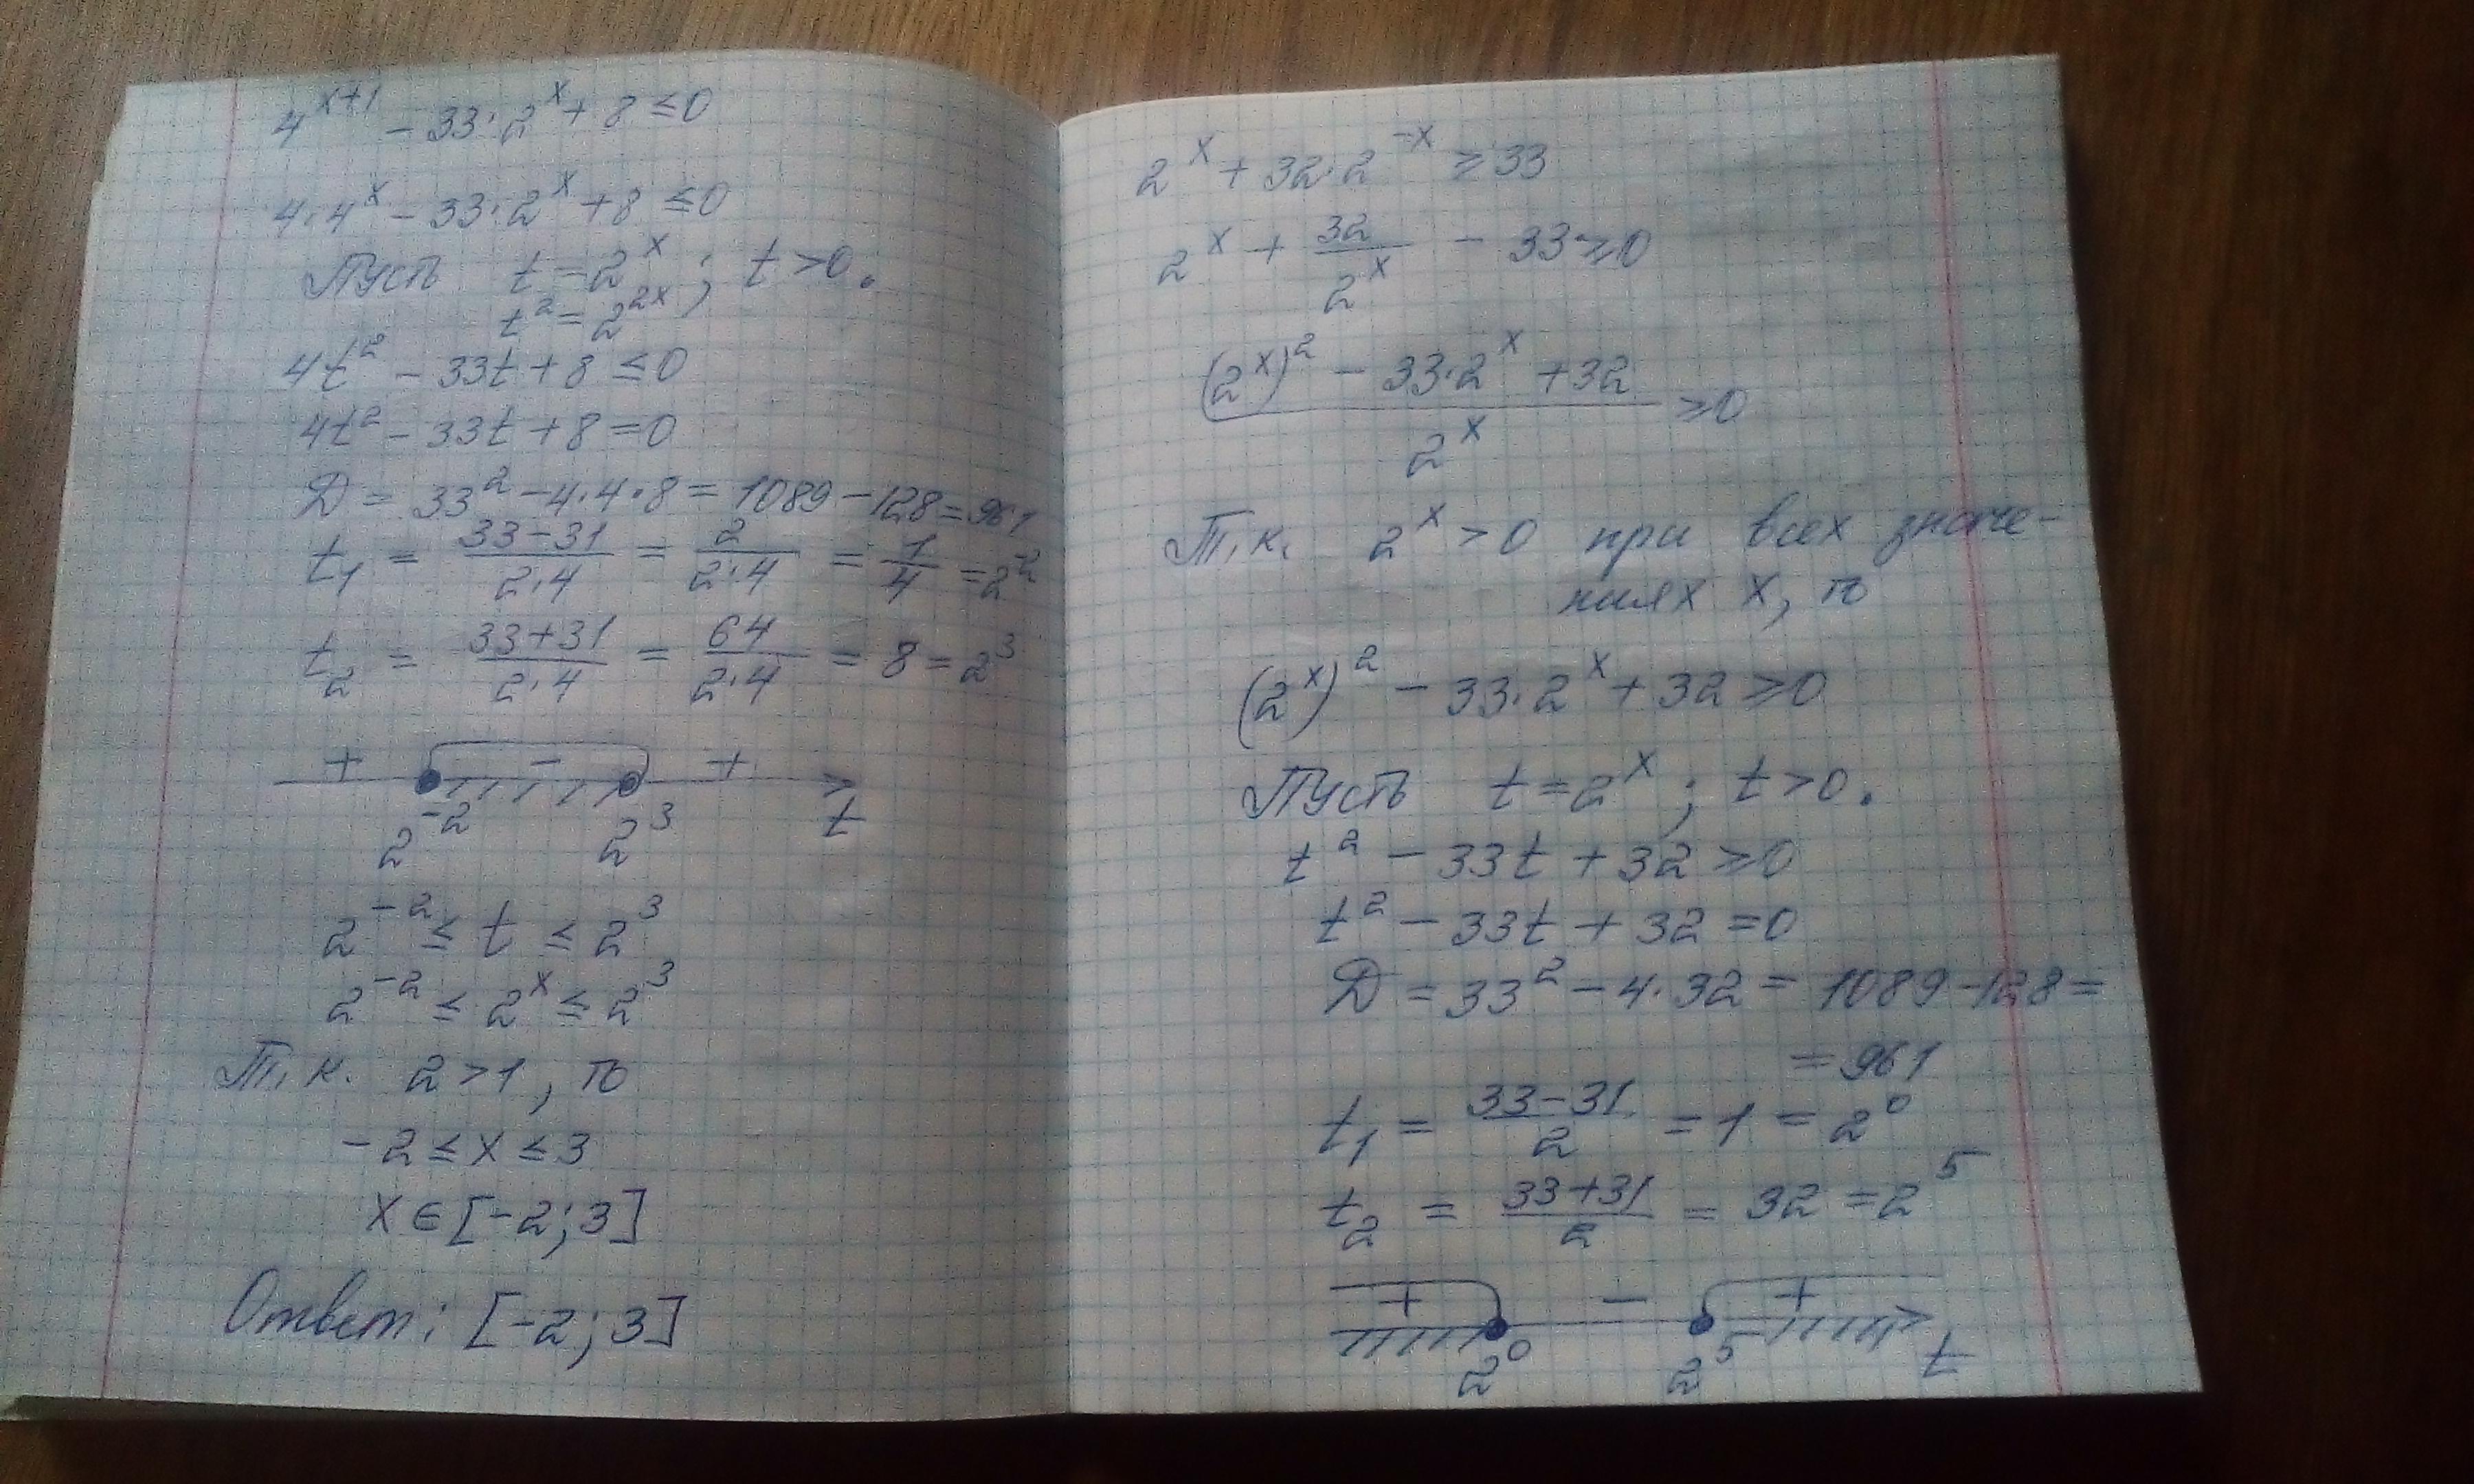 4^{x+1} - 33·2^x + 8 ≤ 0
4·4^x - 33·2^x + 8 ≤ 0
Пусть t = 2^x; t > 0.
t^2 = 2^{2x}
4t^2 - 33t + 8 ≤ 0
4t^2 - 33t + 8 = 0
D = 33^2 - 4·4·8 = 1089 - 128 = 961
t_1 = \frac{33-31}{2·4} = \frac{2}{2·4} = \frac{1}{4} = 2^{-2}
t_2 = \frac{33+31}{2·4} = \frac{64}{2·4} = 8 = 2^3
+ - +
2^{-2} 2^3 t
2^{-2} ≤ t ≤ 2^3
2^{-2} ≤ 2^x ≤ 2^3
Т.к. 2 > 1, то
-2 ≤ x ≤ 3
x ∈ [-2; 3]
Ответ: [-2; 3]
2^x + 32·2^{-x} ≥ 33
2^x + \frac{32}{2^x} - 33 ≥ 0
\frac{(2^x)^2 - 33·2^x + 32}{2^x} ≥ 0
Т.к. 2^x > 0 при всех значе-
ниях x, то
(2^x)^2 - 33·2^x + 32 ≥ 0
Пусть t = 2^x; t > 0.
t^2 - 33t + 32 ≥ 0
t^2 - 33t + 32 = 0
D = 33^2 - 4·32 = 1089 - 128 =
= 961
t_1 = \frac{33-31}{2} = 1 = 2^0
t_2 = \frac{33+31}{2} = 32 = 2^5
+ - +
2^0 2^5 t